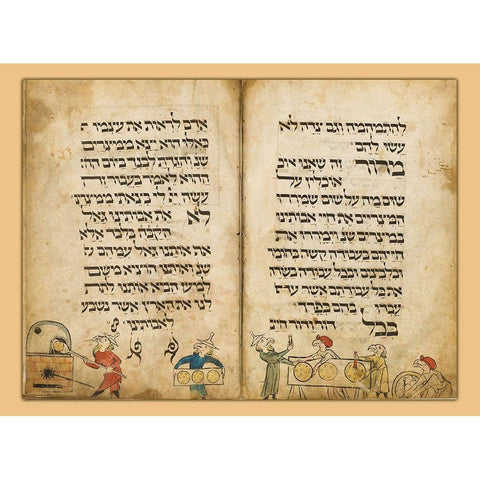 להתמהמה וגם צידה לא
עשו להם
מרור זה שאנו אוכ
אוכלין על
שום מה על שום שמררו
המצריים את חיי אבותינו
במצרים שנ' וימררו את
חייהם בעבודה קשה
בחומר ובלבנים ובכל
עבודה בשדה את
כל עבודתם אשר עבדו
בהם בפרך
בכל דור ודור חייב
אדם לראות את עצמו
כאלו הוא יצא ממצרים
והגדת לבנך ביום
ההוא לאמר בעבור זה
עשה יי לי בצאתי ממצרים
לא את אבותינו גאל
הקב'ה בלבד אלא
אף אותנו גאל עמהם שנ'
ואותנו הוציא משם
למען הביא אותנו לתת
לנו את הארץ אשר נשבע
לאבותינו